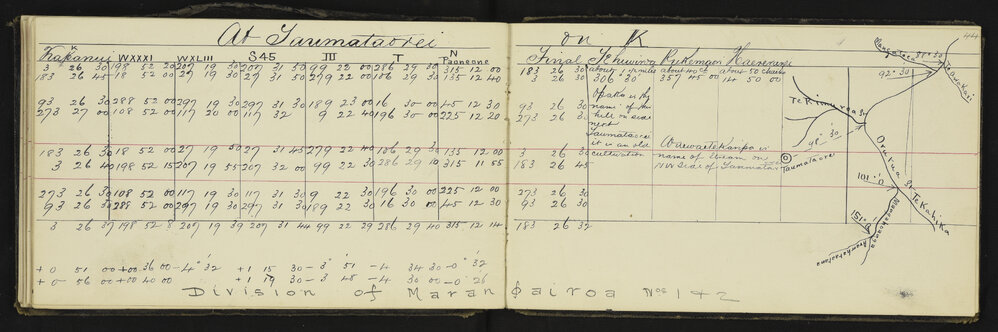 At Taumataorei
on K
44
Kakanui WXXXI WXLIII S45 III T N Paoneone Final
3 26 30 198 52 20 207 19 30 207 31 50 99 22 00 286 29 30 315 12 00 183 26 30
183 26 45 18 52 00 27 19 30 27 31 50 279 22 00 106 29 30 135 12 40 3 26 30
about 40 ch about 50 chains
306 30 357 45 00 14 50 00
93 26 30 288 52 00 297 19 30 297 31 30 189 23 00 16 30 00 45 12 30 93 26 30
273 27 00 108 52 00 117 19 30 117 32 9 22 40 196 30 00 225 12 20 273 26 30
183 26 30 18 52 00 27 19 50 27 31 45 279 22 40 106 29 30 135 12 00 3 26 30
3 26 40 198 52 15 207 19 55 207 32 00 99 22 30 286 29 10 315 11 55 183 26 45
273 26 30 108 52 00 117 19 30 117 31 30 9 22 30 196 30 00 225 12 00 273 26 30
93 26 30 288 52 00 297 19 30 297 31 30 189 22 30 16 30 00 45 12 30 93 26 30
3 26 37 198 52 8 207 19 39 207 31 44 99 22 29 286 29 40 315 12 14 183 26 32
Opaka is the
name of the
hill on
next
Taumataorei
it is an old
cultivation
name of stream on
NW side of Taumata
92° 30
Te Kimuroa St
98° 30
Taumataorei
Orurua St
Te Kahika
101° 0'
151° 0'
+0 51 00 +00 36 00 -4° 32 +1 15 30 -3 51 -4 34 30 -0° 32
+0 56 00 +00 40 00 +1 19 30 -3 48 -4 30 00 -0 26
Division of Marangairoa Nos 1 & 2